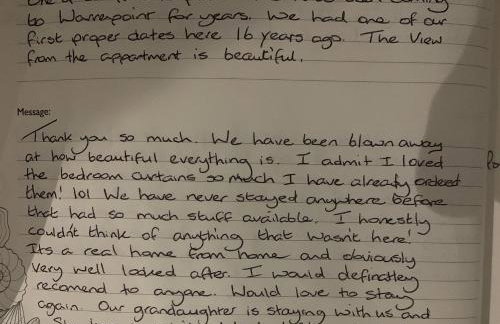 to Warrenpoint for years. We had one of our
first proper dates here 16 years ago. The View
from the appartment is beautiful.
Message:
Thank you so much. We have been blown away
at how beautiful everything is. I admit I loved
the bedroom curtains so much I have already ordered
them! lol We have never stayed anywhere before
that had so much stuff available. I honestly
couldn't think of anything that wasn't here!
Its a real home from home and obviously
very well looked after. I would definatley
recomend to anyone. Would love to stay
again. Our grandaughter is staying with us and